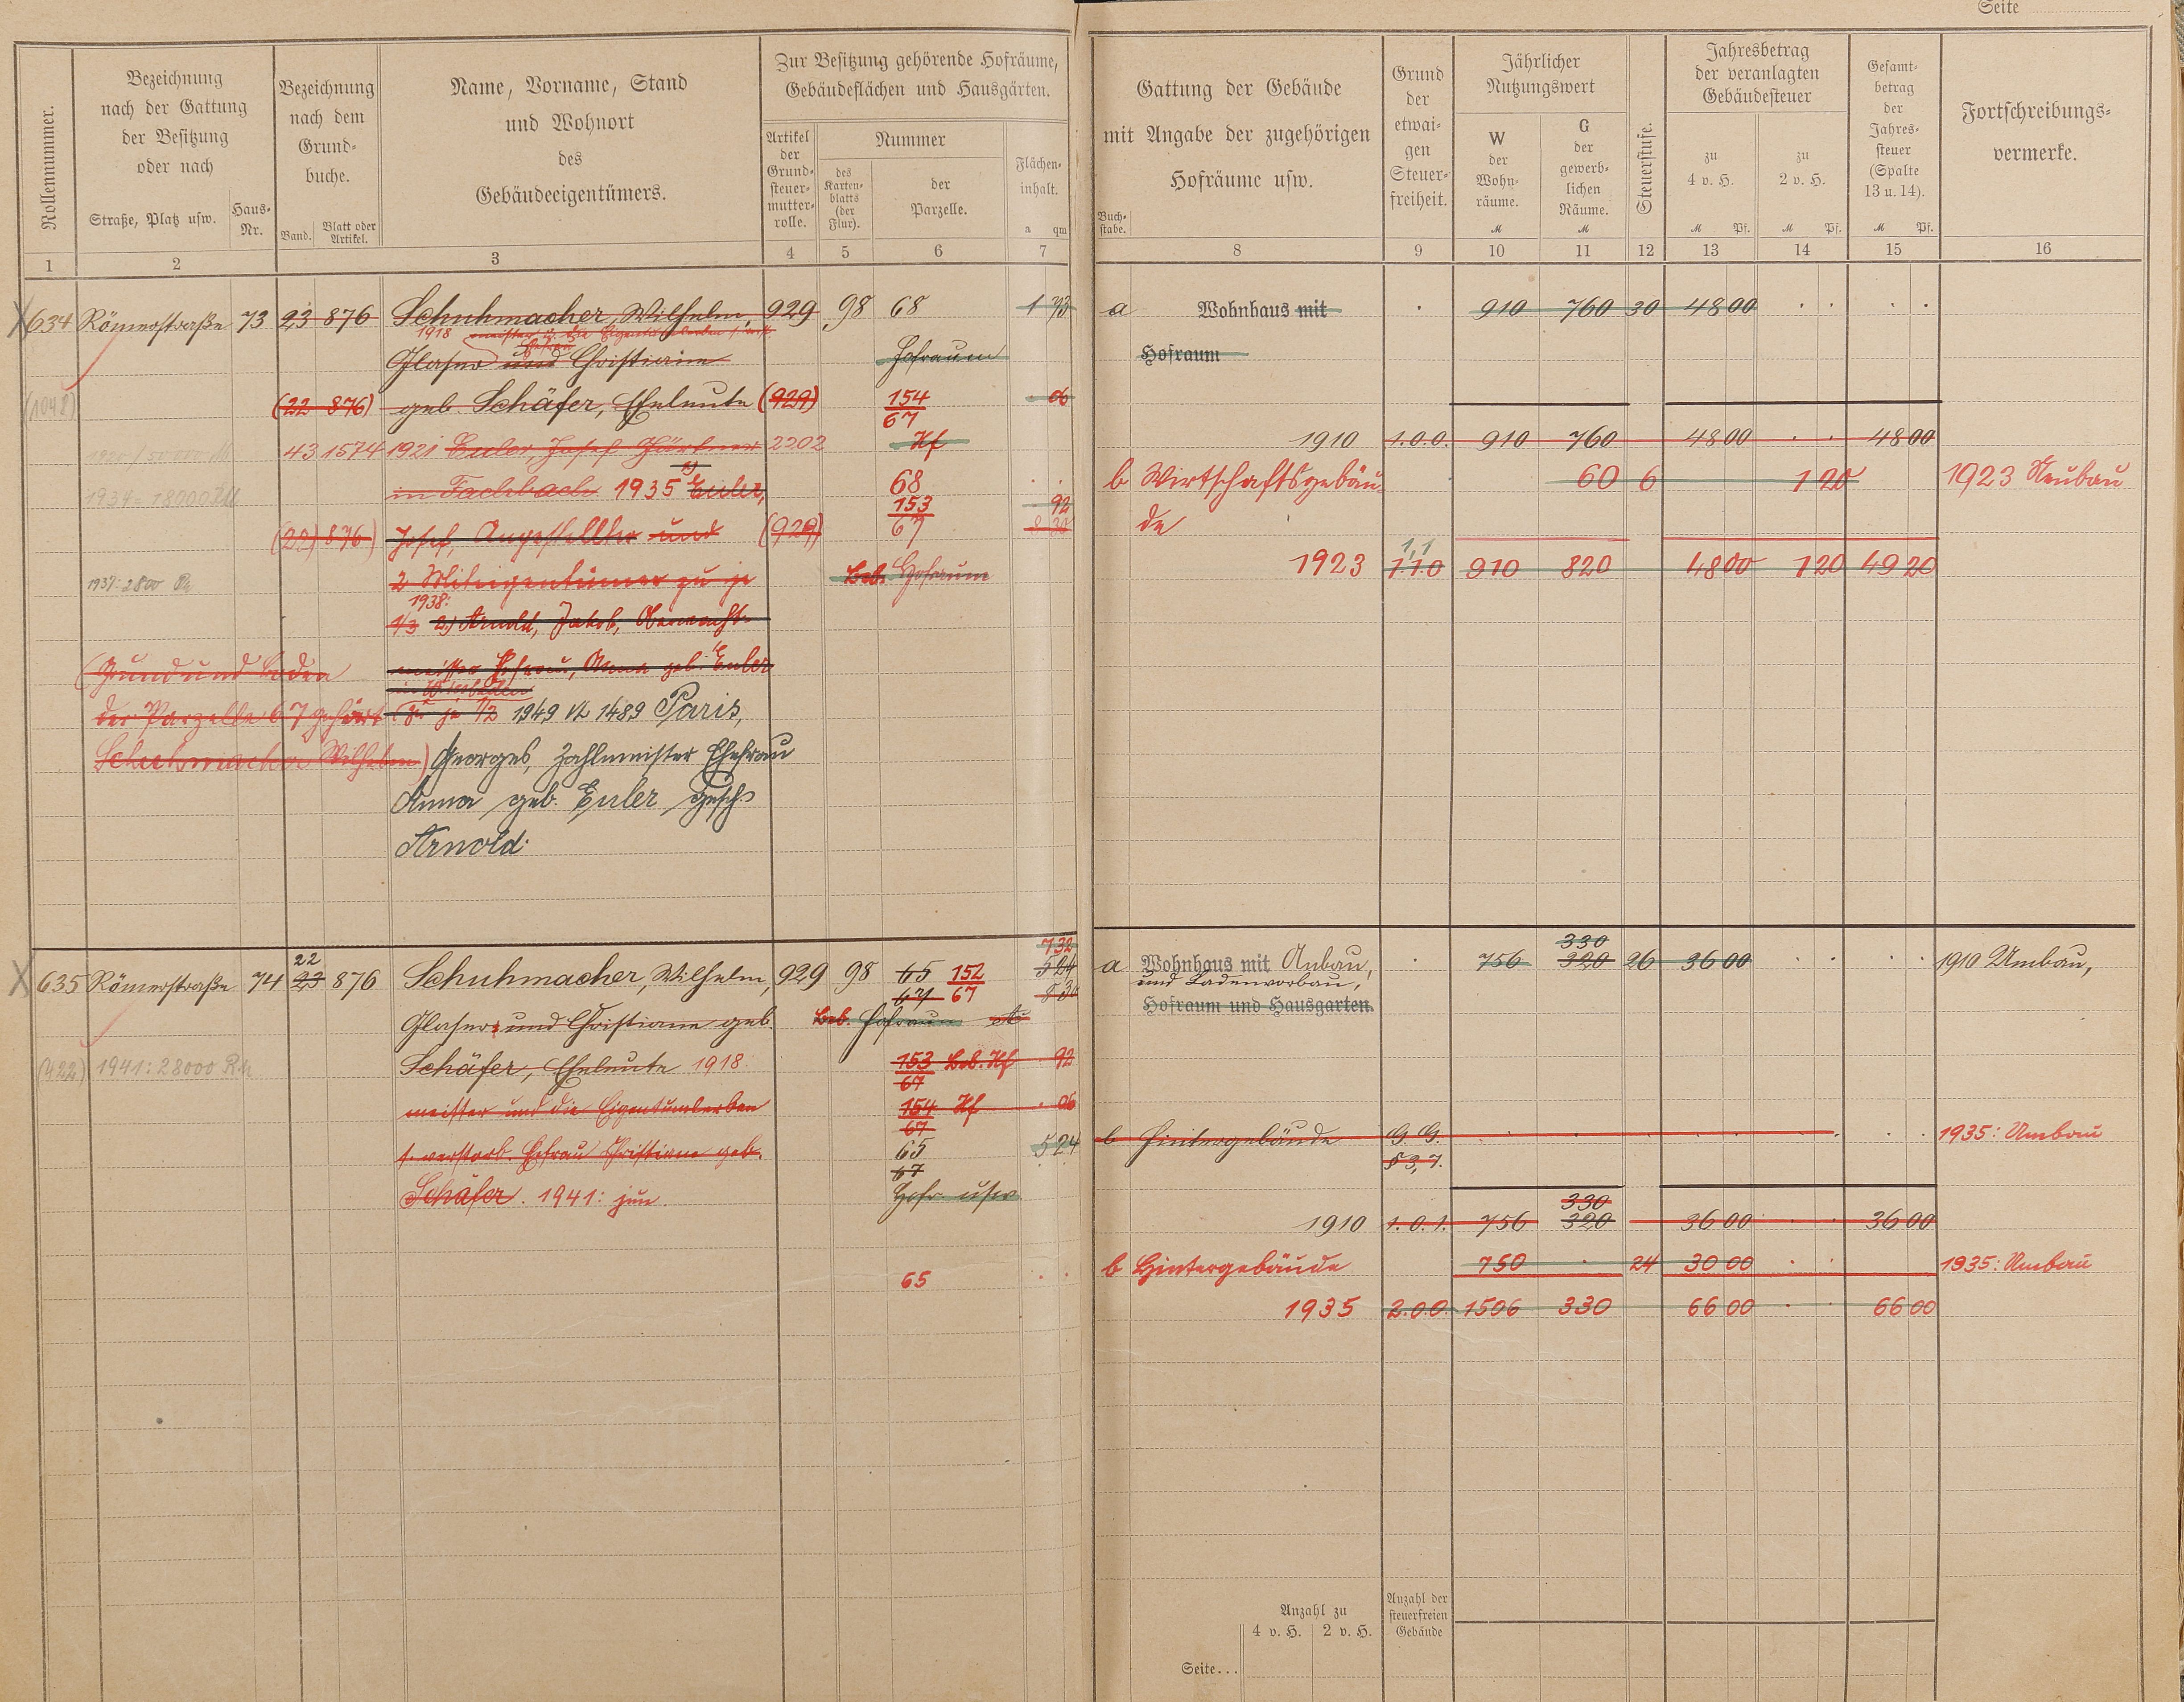 Seite
Rollennummer.
Bezeichnung
nach der Gattung
der Besitzung
oder nach
Straße, Platz usw.
Haus-
Nr.
Bezeichnung
nach dem
Grund-
buche.
Band.
Blatt oder
Artikel.
Name, Vorname, Stand
und Wohnort
des
Gebäudeeigentümers.
Zur Besitzung gehörende Hofräume,
Gebäudeflächen und Hausgärten.
Artikel
der
Grund-
steuer-
mutter-
rolle.
Nummer
des
Karten-
blatts
(der
Flur).
der
Parzelle.
Flächen-
inhalt.
a qm
Gattung der Gebäude
mit Angabe der zugehörigen
Hofräume usw.
Buch-
stabe.
Grund
der
etwai-
gen
Steuer-
freiheit.
Jährlicher
Nutzungswert
W
der
Wohn-
räume.
M
G
der
gewerb-
lichen
Räume.
M
Steuerstufe.
Jahresbetrag
der veranlagten
Gebäudesteuer
zu
4 v. H.
M Pf.
zu
2 v. H.
M Pf.
Gesamt-
betrag
der
Jahres-
steuer
(Spalte
13 u. 14).
M Pf.
Fortschreibungs-
vermerke.
1 2 3 4 5 6 7 8 9 10 11 12 13 14 15 16
634 Römerstraße 73 23 876 Schuhmacher, Wilhelm, 929 98 68 1 73 a Wohnhaus mit 910 760 30 48 00
1918
Glaser und Christiane Hofraum Hofraum
(1048) (22 876) geb. Schäfer, Eheleute (929) 154/67 06
43 1574 1921 Euler, Josef Gärtner 2202 Hf 1910 1.0.0. 910 760 48 00 48 00
1934 = 18000 RM in Fachbach 1935 1) Euler, 68 b Wirtschaftsgebäu- 60 6 1 20 1923 Neubau
153/67 92
(22) 876) Josef, Angestellter und (929) 8 30 de
1,1
1923 1.1.0 910 820 48 00 1 20 49 20
1937: 2800 2 Miteigentümer zu je Beb. Hofraum
1938:
1/3 2.) Arnold, Jakob, Oberwacht-
(Grund und Boden meister Ehefrau, Anna geb. Euler
in Wiesbaden
der Parzelle 67 gehört zu je 1/2 1949 1489 Paris,
Schuhmacher Wilhelm) Georges, Zahlmeister Ehefrau
Anna geb. Euler gesch.
Arnold.
22 7 32 330
635 Römerstraße 74 23 876 Schuhmacher, Wilhelm, 929 98 65 152/67 5 24 a Wohnhaus mit Anbau, 756 320 26 36 00 1910 Umbau,
67 8 30 und Ladenvorbau,
Glaser und Christiane geb. Beb. Hofraum Hofraum und Hausgarten.
(422) 1941: 28000 Schäfer, Eheleute 1918 153/67 Beb. Hf 92
meister und die Eigentumserben 154/67 Hf 06
s. verstorb. Ehefrau Christiane geb. 65 5 24 b Hintergebäude G. G. 1935: Umbau
67 § 3, 7.
Schäfer. 1941: jun. Hofr. usw.
330
1910 1.0.1. 756 320 36 00 36 00
65 b Hintergebäude 750 24 30 00 1935: Umbau
1935 2.0.0. 1506 330 66 00 66 00
Anzahl zu
4 v. H. 2 v. H.
Anzahl der
steuerfreien
Gebäude
Seite...